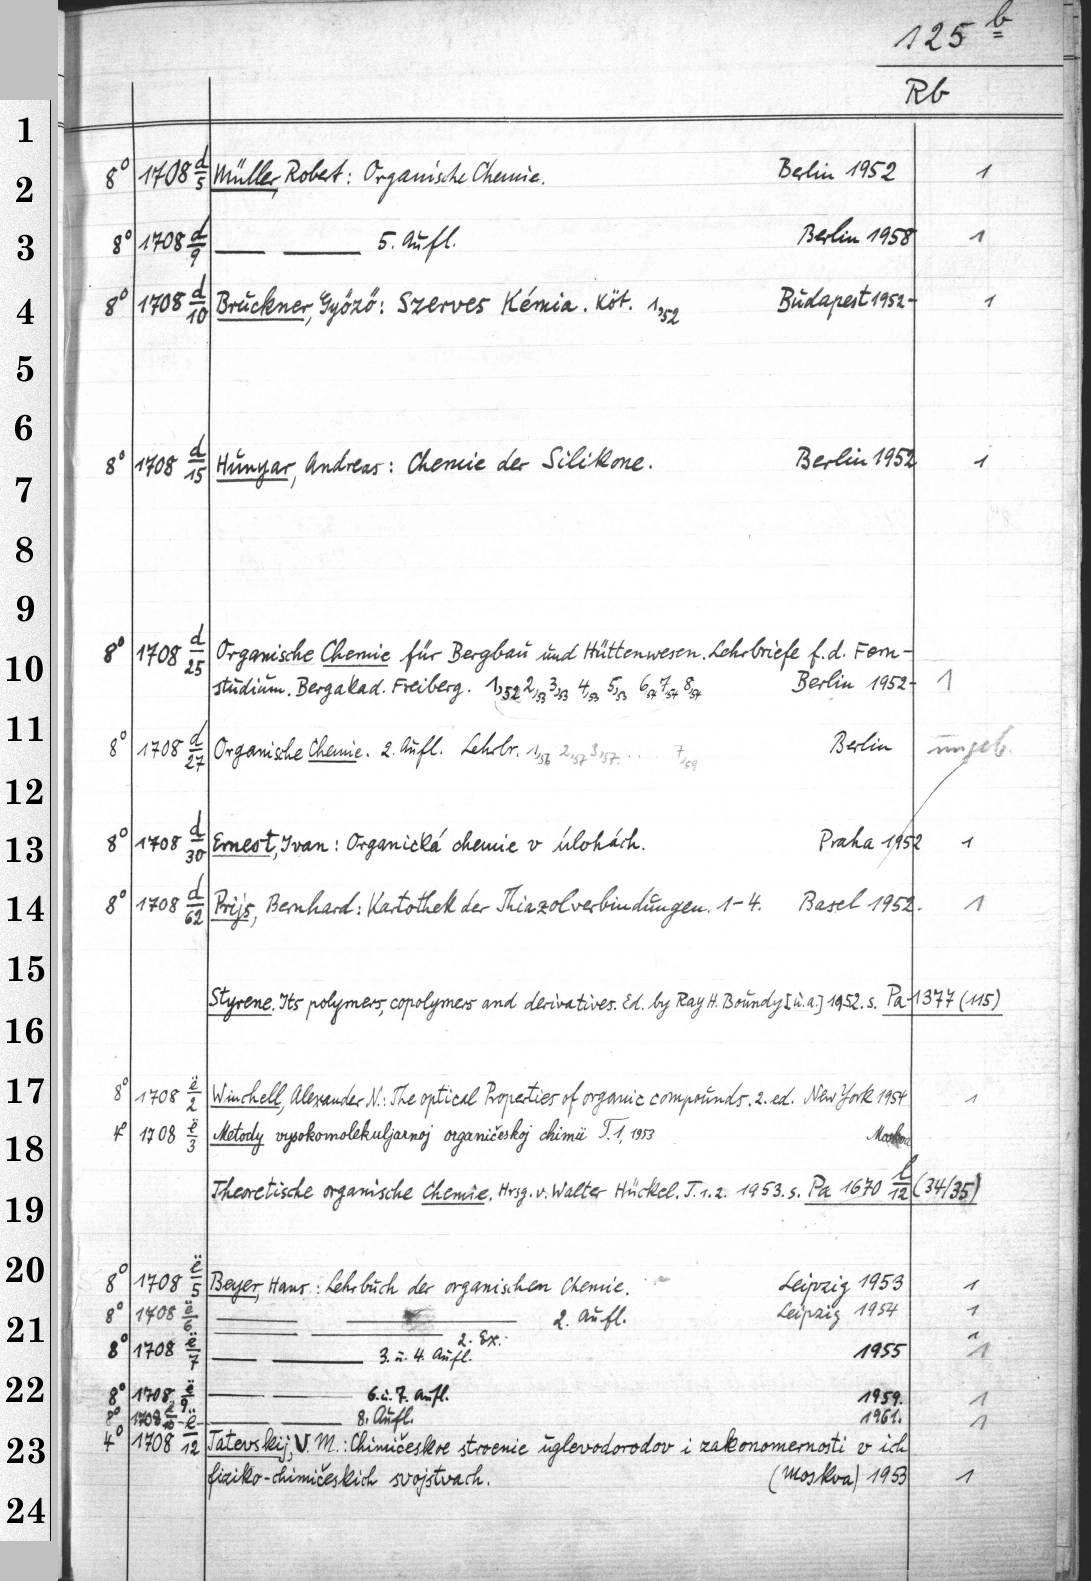 125 b
Rb
1
2
3
4
5
6
7
8
9
10
11
12
13
14
15
16
17
18
19
20
21
22
23
24
8° 1708 d/5 Müller, Robert: Organische Chemie. Berlin 1952 1
8° 1708 d/9 —— —— 5. Aufl. Berlin 1958 1
8° 1708 d/10 Bruckner, Győző: Szerves Kémia. Köt. 1,52 Budapest 1952- 1
8° 1708 d/15 Hunyar, Andreas: Chemie der Silikone. Berlin 1952 1
8° 1708 d/25 Organische Chemie für Bergbau und Hüttenwesen. Lehrbriefe f. d. Fern-
studium. Bergakad. Freiberg. 1,52 2,53 3,53 4,53 5,53 6,54 7,54 8,54 Berlin 1952- 1
8° 1708 d/27 Organische Chemie. 2. Aufl. Lehrbr. 1,56 2,57 3,57. ... 7,59 Berlin ungeb.
8° 1708 d/30 Ernest, Ivan: Organická chemie v úlohách. Praha 1952 1
8° 1708 d/62 Prijs, Bernhard: Kartothek der Thiazolverbindungen. 1-4. Basel 1952. 1
Styrene. Its polymers, copolymers and derivatives. Ed. by Ray H. Boundy [u.a.] 1952. s. Pa 1377 (115)
8° 1708 ë/2 Winchell, Alexander N.: The optical Properties of organic compounds. 2. ed. New York 1954 1
4° 1708 ë/3 Metody vysokomolekuljarnoj organičeskoj chimii T. 1, 1953 Moskva
Theoretische organische Chemie. Hrsg. v. Walter Hückel. T. 1. 2. 1953. s. Pa 1670 l/12 (34/35)
8° 1708 ë/5 Beyer, Hans: Lehrbuch der organischen Chemie. Leipzig 1953 1
8° 1708 ë/6 —— —— 2. Aufl. Leipzig 1954 1
—— —— 2. Ex. 1
8° 1708 ë/7 —— —— 3. u. 4. Aufl. 1955 1
8° 1708 ë/9 —— —— 6. u. 7. Aufl. 1959. 1
8° 1708 ë/10 —— —— 8. Aufl. 1961. 1
4° 1708 ë/12 Tatevskij, V. M.: Chimičeskoe stroenie uglevodorodov i zakonomernosti v ich
fiziko-chimičeskich svojstvach. (Moskva) 1953 1